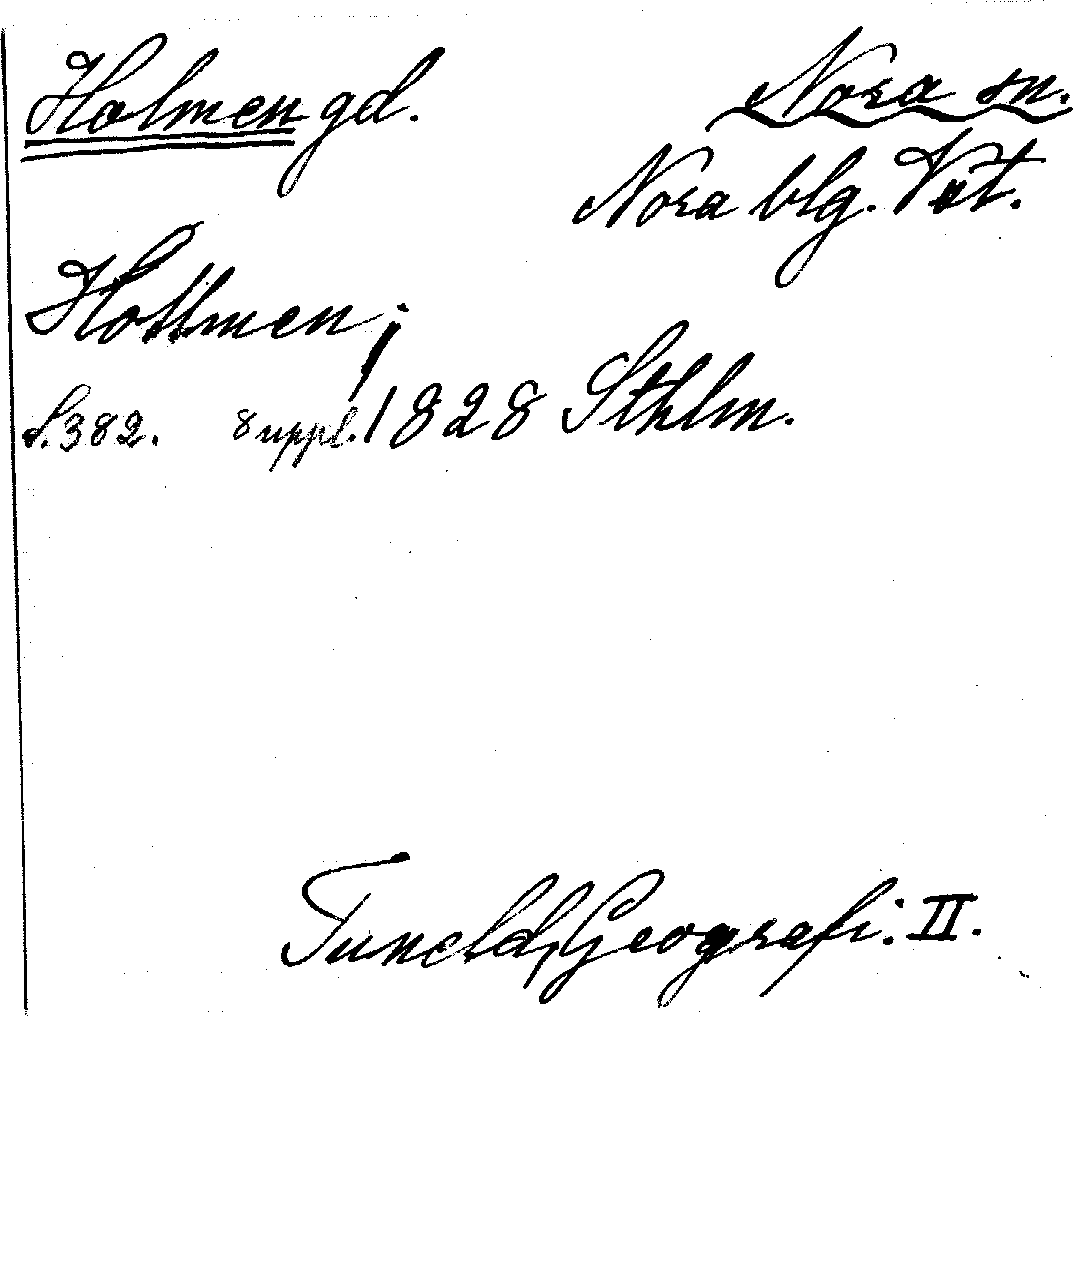 Holmen gd.
Nora sn.
Nora blg. Vst.
Hollmen;
S. 382. 8 uppl. 1828 Sthlm.
Tuneld, Geografi: II.